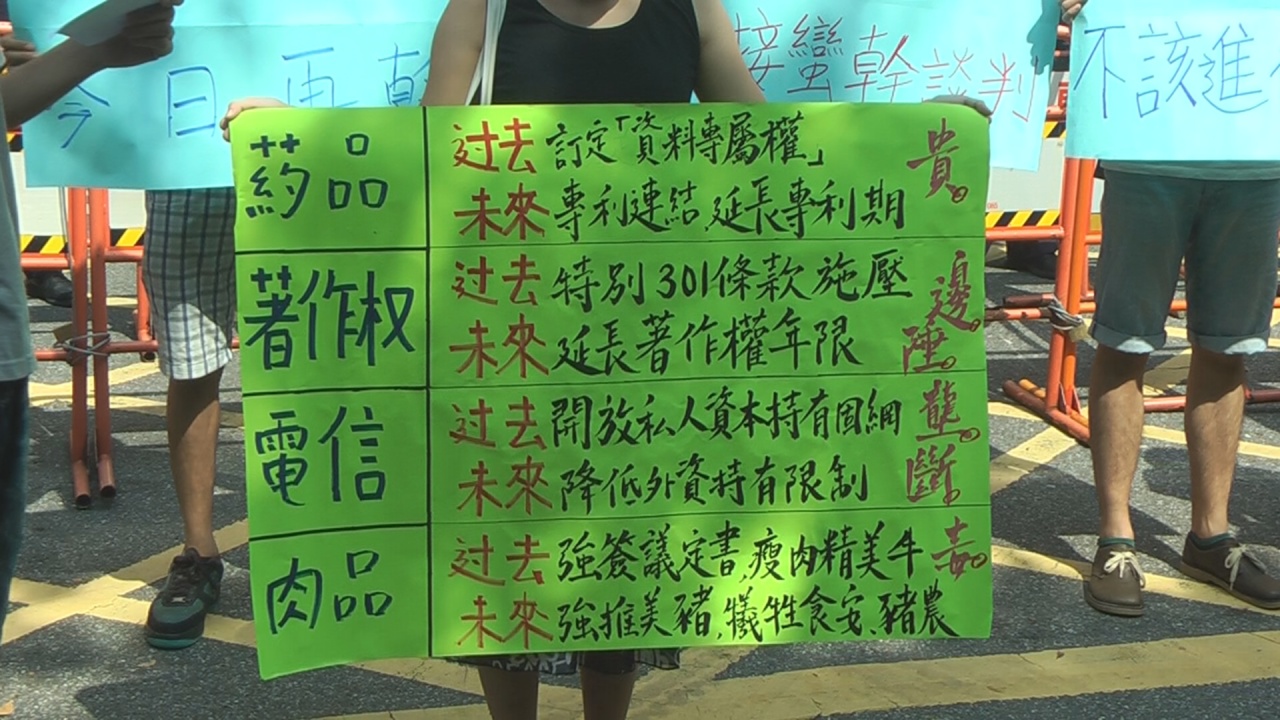 今日再幹
接蠻幹談判
不該進
药品
过去 訂定「資料專屬權」
未來 專利連結 延長專利期
貴。
著作权
过去 特別301條款施壓
未來 延長著作權年限
電信
过去 開放私人資本持有固網
未來 降低外資持有限制
壟斷。
肉品
过去 強簽議定書,瘦肉精美牛
未來 強推美豬,犧牲食安、豬農
毒。